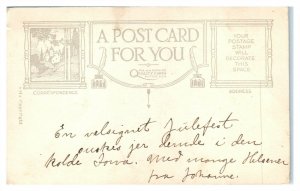 A POST CARD
FOR YOU
QUALITY CARDS
YOUR
POSTAGE
STAMP
WILL
DECORATE
THIS
SPACE
CORRESPONDENCE
ADDRESS
En velsignet Julefest
ønskes jer derude i den
kolde Iowa. Med mange Hilsener
fra Johanne.